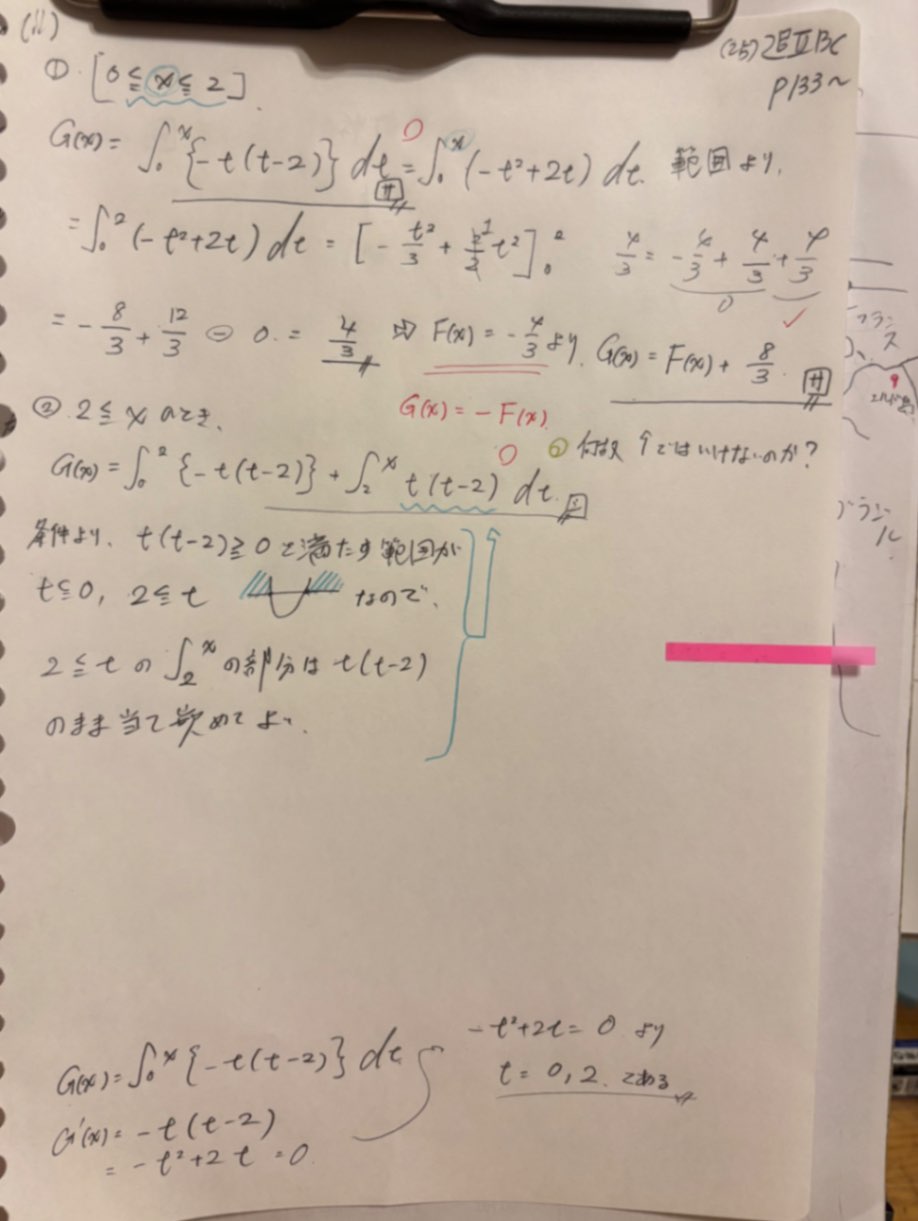 (ii)
(25) 2BⅡBC
P133~
① [0≦x≦2]
G(x)= ∫₀ˣ{-t(t-2)} dt = ∫₀ˣ(-t²+2t) dt. 範囲より,
サ
= ∫₀²(-t²+2t) dt = [-t²/3 + 2/2 t²]₀² 4/3 = -4/3 + 4/3 + 4/3
1
0
= -8/3 + 12/3 - 0. = 4/3 ⇨ F(x) = -4/3 より, G(x) = F(x) + 8/3. サ
② 2≦x のとき, G(x) = -F(x)
何故 ↑ではいけないのか?
G(x) = ∫₀²{-t(t-2)} + ∫₂ˣ t(t-2) dt.
条件より, t(t-2)≧0 を満たす範囲が
t≦0, 2≦t なので,
2≦t の ∫₂ˣ の部分は t(t-2)
のまま当て嵌めてよい.
G(x) = ∫₀ˣ{-t(t-2)} dt
G'(x) = -t(t-2)
= -t²+2t = 0
-t²+2t = 0 より
t = 0, 2. である
フランス
ブラジル